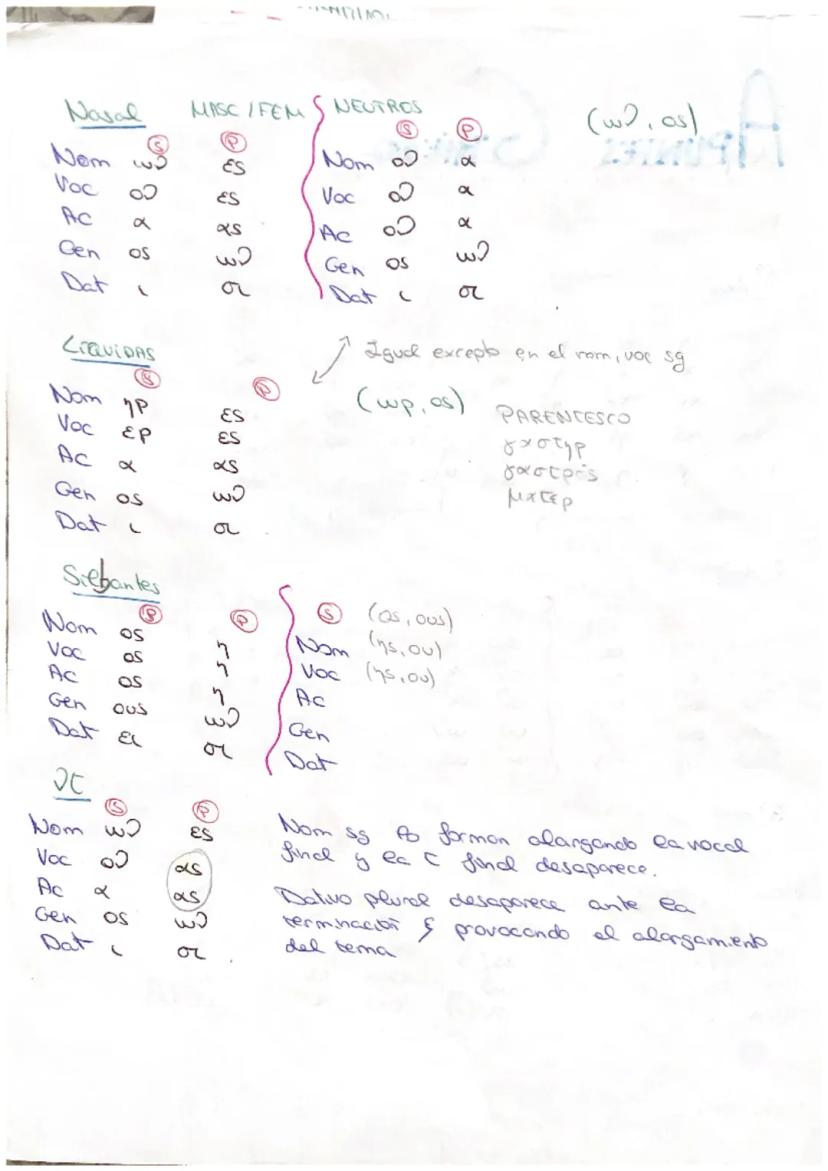 Nasal MASC / FEM NEUTROS (ων, ος)
Ⓢ Ⓟ Ⓢ Ⓟ
Nom ων ες Nom ον α
Voc ον ες Voc ον α
Ac α ας Ac ον α
Gen ος ων Gen ος ων
Dat ι σι Dat ι σι
LÍQUIDAS Igual excepto en el nom, voc sg
Ⓢ Ⓟ (ωρ, ος)
Nom ηρ ες PARENTESCO
Voc ερ ες γαστηρ
Ac α ας γαστρός
Gen ος ων ματερ
Dat ι σι
Silbantes
Ⓢ Ⓟ Ⓢ (ος, ους)
Nom ος η Nom (ης, ου)
Voc ος η Voc (ης, ου)
Ac ος η Ac
Gen ους ων Gen
Dat ει σι Dat
ντ
Ⓢ Ⓟ
Nom ων ες Nom sg forman alargando la vocal
Voc ον ας final y la τ final desaparece.
Ac α ας Dativo plural desaparece ante la
Gen ος ων terminación ς provocando el alargamiento
Dat ι σι del tema